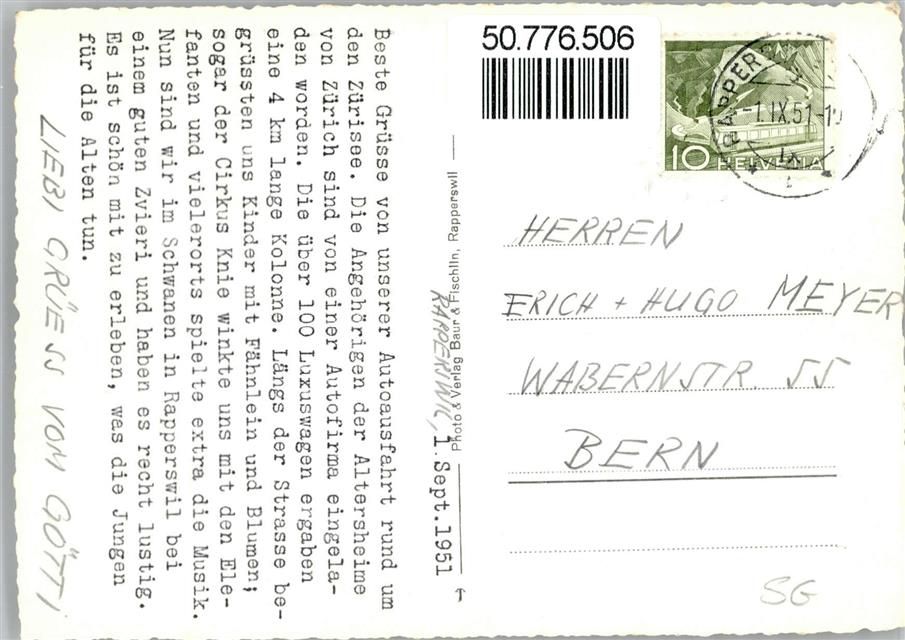 50.776.506
RAPPERS
1.IX.51-1
10 HELVETIA
Photo & Verlag Baur & Fischlin, Rapperswil
RAPPERSWIL, 1. Sept.1951
Beste Grüsse von unserer Autoausfahrt rund um
den Zürisee. Die Angehörigen der Altersheime
von Zürich sind von einer Autofirma eingela-
den worden. Die über 100 Luxuswagen ergaben
eine 4 km lange Kolonne. Längs der Strasse be-
grüssten uns Kinder mit Fähnlein und Blumen;
sogar der Cirkus Knie winkte uns mit den Ele-
fanten und vielerorts spielte extra die Musik.
Nun sind wir im Schwanen in Rapperswil bei
einem guten Zvieri und haben es recht lustig.
Es ist schön mit zu erleben, was die Jungen
für die Alten tun.
LIEBI GRÜESS VOM GÖTTI
HERREN
ERICH + HUGO MEYER
WABERNSTR. 55
BERN
SG